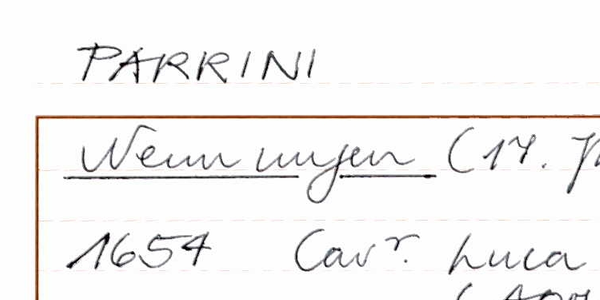 PARRINI
Nennungen (17.
1654 Cavr. Luca